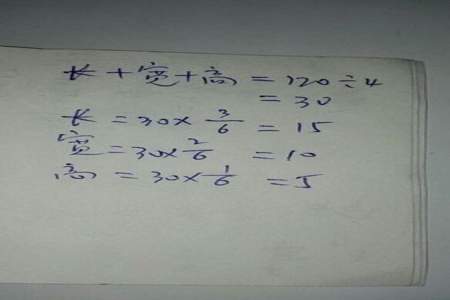 长+宽+高=120÷4
=30
长=30×3/6=15
宽=30×2/6=10
高=30×1/6=5